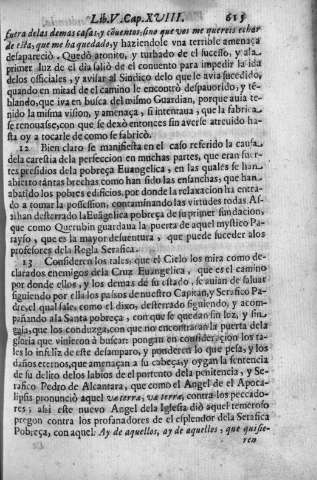 Lib.V.Cap.XVIII. 615
fuera delas demas casas, y cõuentos, sino que vos me quereis echar
de esta, que me ha quedado, y haziendole vna terrible amenaça
desapareciò. Quedò atonito, y turbado de el sucesso, y ala
primer luz de el dia saliò de el conuento para impedir la ida
delos officiales, y avisar al Sindico delo que le avia sucedido,
quando en mitad de el camino le encontrò despauorido, y tẽ-
blando, que iva en busca del mismo Guardian, porque auia te-
nido la misma visiòn, y amenaça, si intentaua, que la fabrica
se renouasse, con que se dexò entonces sin averse atreuido has-
ta oy a tocarle de como se fabricò.
12 Bien claro se manifiesta en el caso referido la causa
dela carestia dela perseccion en muchas partes, que eran fuer-
tes presidios dela pobreça Euangelica, en las quales se han
abierto tãntas brechas como han sido las ensanchas, que han
abatido los pobres edificios, por donde la relaxacion ha entra-
do a tomar la possession, contaminando las virtudes todas. As-
si han desterrado la Euãgelica pobreça de su primer fundacion,
que como Querubin guardaua la puerta de aquel mystico Pa-
rayso, que es la mayor desuentura, que puede suceder alos
professores dela Regla Serafica.
13 Consideren los tales, que el Cielo los mira como de-
clarados enemigos dela Cruz Euangelica, que es el camino
por donde ellos, y los demas de su estado, se auian de saluar
siguiendo por ella los passos de nuestro Capitan, y Serafico Pa-
dre, el qual sale, como el dixo, desterrado siguiendo, y acom-
pañando ala Santa pobreça, con que se quedan sin luz, y sin
guia, que los conduzga, con que no encontraran la puerta dela
gloria que vinieron à buscar: pongan en consideraciòn los ta-
les lo infeliz de este desamparo, y ponderen lo que pesa, y los
daños eternos, que amenaçan a su cabeça, y oygan la sentencia
de su delito delos labios de el portento dela penitencia, y Se-
rafico Pedro de Alcantara, que como el Angel de el Apoca-
lipsis pronunciò aquel væ terræ, væ terræ, contra los peccado-
res; assi este nuevo Angel dela Iglesia diò aquel temeroso
pregon contra los profanadores de el esplendor dela Serafica
Pobreça, con aquel: Ay de aquellos, ay de aquellos, que quisie-
ren